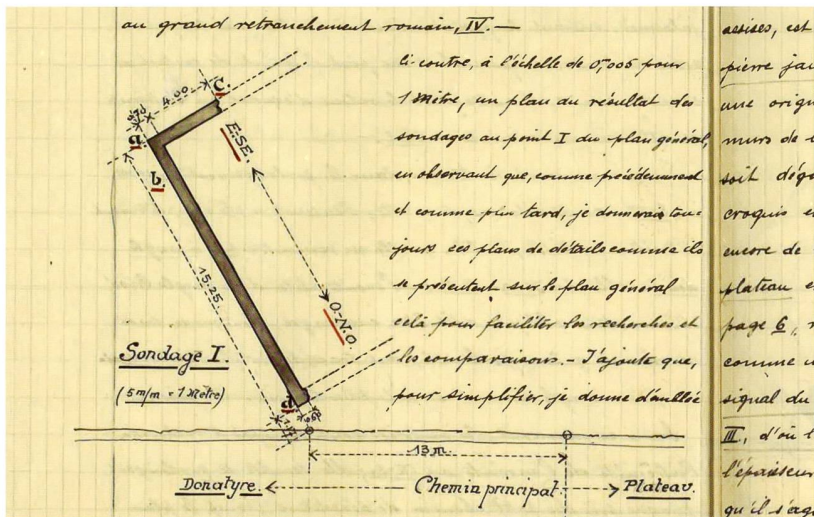 au grand retranchement romain, IV. —
Ci-contre, à l'échelle de 0,m005 pour
1 Mètre, un plan du résultat des
sondages au point I du plan général,
en observant que, comme précédemment
et comme plus tard, je donnerais tou-
jours ces plans de détails comme ils
se présentent sur le plan général
celà pour faciliter les recherches et
les comparaisons. — J'ajoute que,
pour simplifier, je donne d'emblée
4.00
C.
a.
b.
E.S.E.
15.25
O-N.O.
Sondage I.
(5 m/m = 1 Mètre)
d
13 m.
Donatyre. Chemin principal. Plateau.
assises, est
pierre
une
murs de
soit
croquis
encore de
plateau
page 6,
comme
signal du
III, d'où
l'épaisseur
qu'il